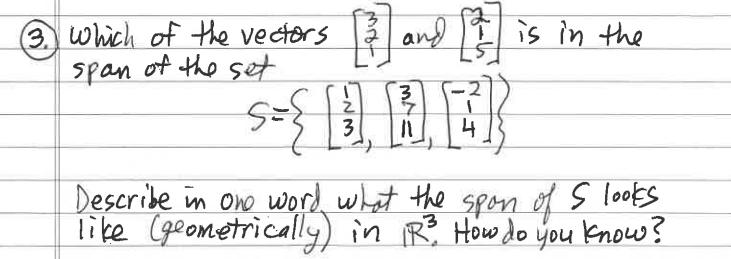 3. Which of the vectors [3 2 1] and [2 1 5] is in the
span of the set
S={ [1 2 3], [3 7 11], [-2 1 4] }
Describe in one word what the span of S looks
like (geometrically) in ℝ³. How do you know?